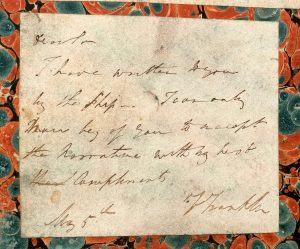 Dear Sir
I have written to you
by the Ship I can only
beg of you to accept
the Narrative with my best
Compliments
J Franklin
May 5th